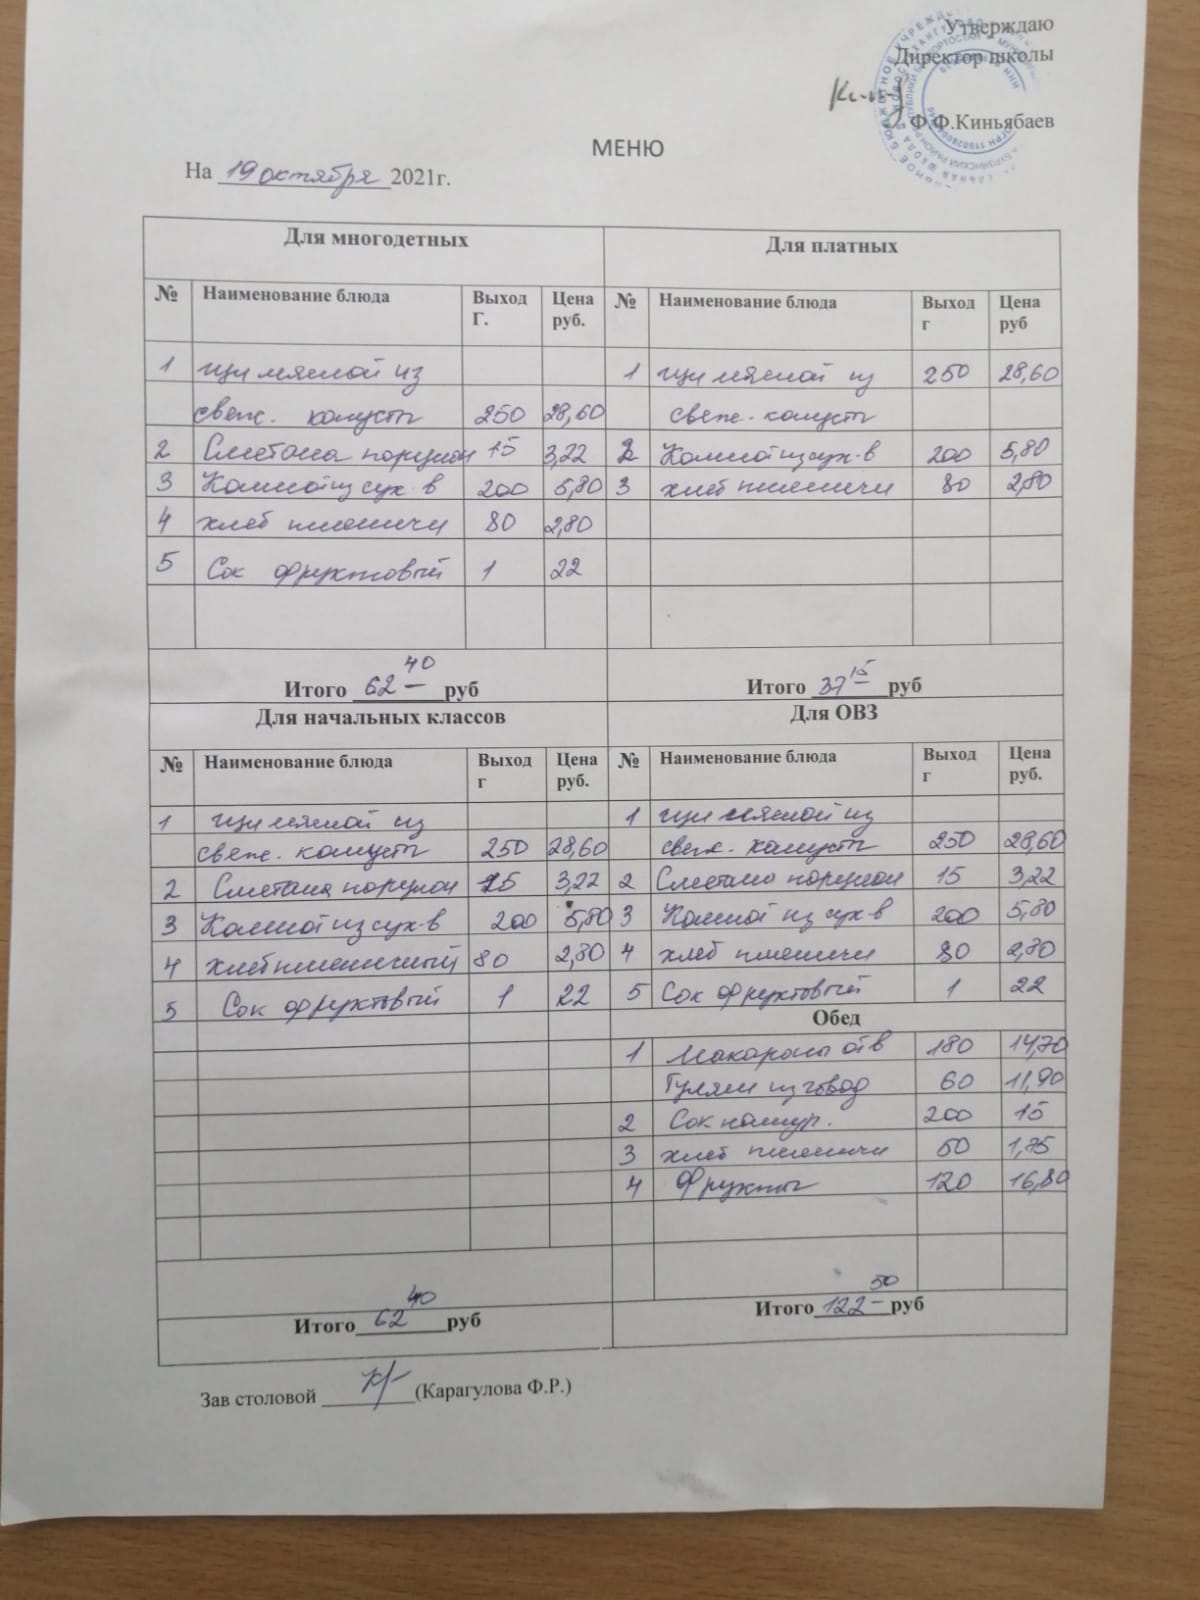 Утверждаю
Директор школы
Ф.Ф.Киньябаев
МЕНЮ
На 19 октября 2021г.
Для многодетных Для платных
№ Наименование блюда Выход Г. Цена руб. № Наименование блюда Выход г Цена руб
1 щи мясной из 1 щи мясной из 250 28,60
свеж. капусты 250 28,60 свеж. капусты
2 Сметана порцион 15 3,22 2 Компот из сух-в 200 5,80
3 Компот из сух-в 200 5,80 3 хлеб пшеничн 80 2,80
4 хлеб пшеничн 80 2,80
5 Сок фруктовый 1 22
Итого 62 40 руб Итого 37 15 руб
Для начальных классов Для ОВЗ
№ Наименование блюда Выход г Цена руб. № Наименование блюда Выход г Цена руб.
1 щи мясной из 1 щи мясной из
свеж. капусты 250 28,60 свеж. капусты 250 28,60
2 Сметана порцион 15 3,22 2 Сметана порцион 15 3,22
3 Компот из сух-в 200 5,80 3 Компот из сух-в 200 5,80
4 хлеб пшеничный 80 2,80 4 хлеб пшеничн 80 2,80
5 Сок фруктовый 1 22 5 Сок фруктовый 1 22
Обед
1 Макароны отв 180 14,70
Гуляш из говяд 60 11,90
2 Сок натур. 200 15
3 хлеб пшеничн 50 1,75
4 Фрукты 120 16,80
Итого 62 40 руб Итого 122 50 руб
Зав столовой (Карагулова Ф.Р.)